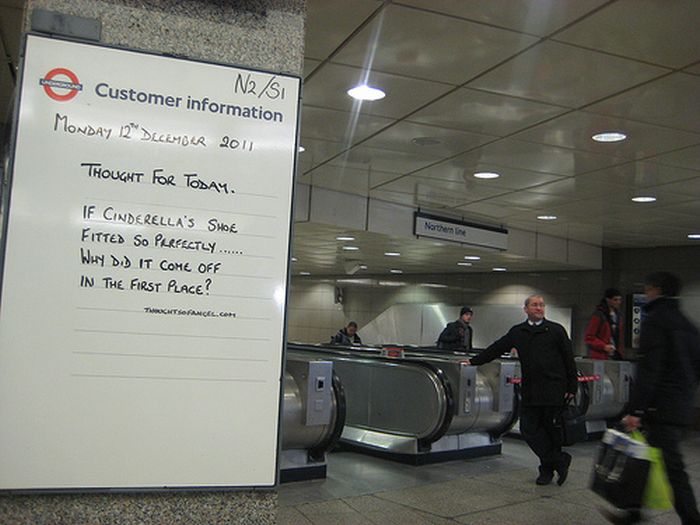 N2/S1
UNDERGROUND
Customer information
MONDAY 12TH DECEMBER 2011
THOUGHT FOR TODAY.
IF CINDERELLA'S SHOE
FITTED SO PERFECTLY......
WHY DID IT COME OFF
IN THE FIRST PLACE?
THOUGHTSOFANGEL.COM
Northern line